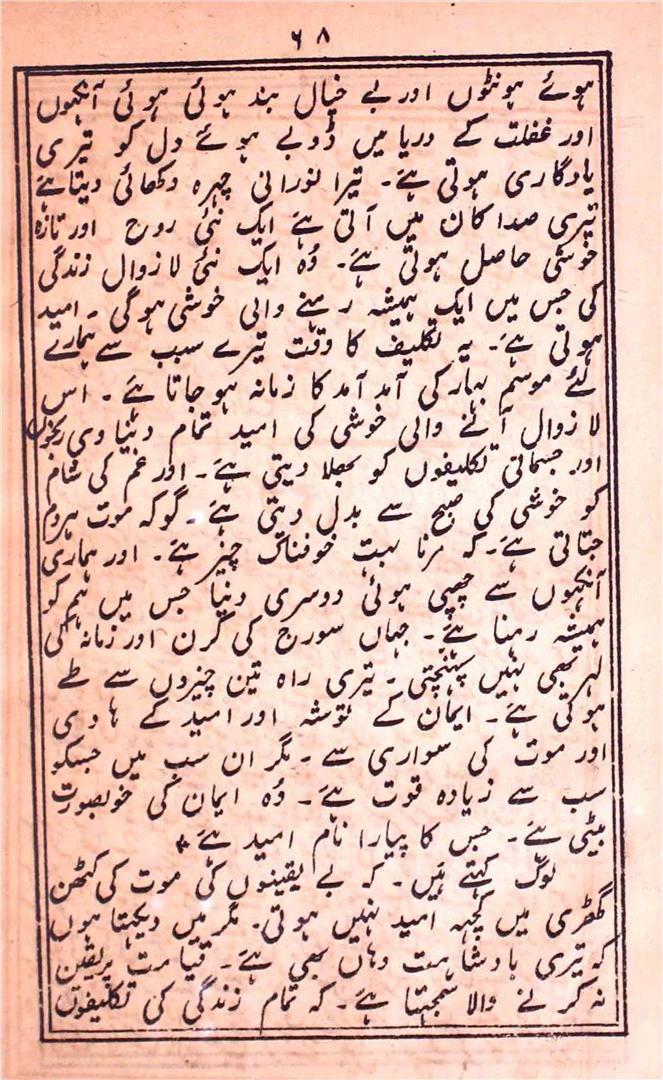 ۶۸
ہوئے ہونٹوں اور بے خیال بند ہوئی ہوئی آنکھوں
اور غفلت کے دریا میں ڈوبے ہوئے دل کو تیری
یادگاری ہوتی ہے۔ تیرا نورانی چہرہ دکھائی دیتا ہے
تیری صدا کان میں آتی ہے ایک نئی روح اور تازہ
خوشی حاصل ہوتی ہے۔ وُہ ایک نئی لازوال زندگی
کی جس میں ایک ہمیشہ رہنے والی خوشی ہوگی۔ امید
ہوتی ہے۔ یہ تکلیف کا وقت تیرے سبب سے ہمارے
لئے موسم بہار کی آمد آمد کا زمانہ ہو جاتا ہے۔ اُس
لازوال آنے والی خوشی کی امید تمام دنیاوی رنجوں
اور جسمانی تکلیفوں کو بھلا دیتی ہے۔ اور غم کی شام
کو خوشی کی صبح سے بدل دیتی ہے۔ گو کہ موت ہردم
جتاتی ہے۔ کہ مرنا بہت خوفناک چیز ہے۔ اور ہماری
آنکھوں سے چھپی ہوئی دوسری دنیا جس میں ہم کو
ہمیشہ رہنا ہے۔ جہاں سورج کی کرن اور زمانہ کی
لہر بھی نہیں پہنچتی۔ تیری راہ تین چیزوں سے طے
ہوتی ہے۔ ایمان کے توشہ اور امید کے ہادی
اور موت کی سواری سے۔ مگر ان سب میں جسکو
سب سے زیادہ قوت ہے۔ وُہ ایمان کی خوبصورت
بیٹی ہے۔ جس کا پیارا نام امید ہے *
لوگ کہتے ہیں۔ کہ بے یقینوں کی موت کی کٹھن
گھڑی میں کچہہ امید نہیں ہوتی۔ مگر میں دیکہتا ہوں
کہ تیری بادشاہت وہاں بھی ہے۔ قیامت پر یقین
نہ کرنے والا سمجہتا ہے۔ کہ تمام زندگی کی تکلیفوں